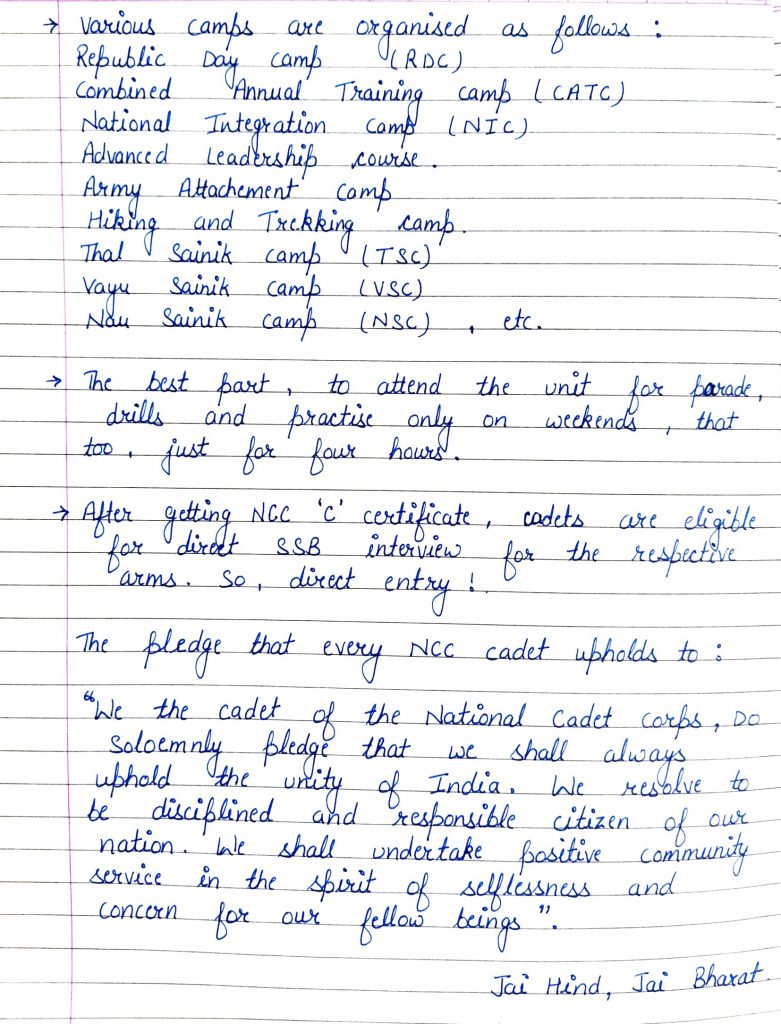 → Various camps are organised as follows :
Republic Day Camp (RDC)
Combined Annual Training camp (CATC)
National Integration Camp (NIC)
Advanced Leadership course.
Army Attachement Camp
Hiking and Trekking camp.
Thal Sainik Camp (TSC)
Vayu Sainik Camp (VSC)
Nau Sainik Camp (NSC) , etc.
→ The best part, to attend the unit for parade,
drills and practise only on weekends, that
too, just for four hours.
→ After getting NCC 'C' certificate, cadets are eligible
for direct SSB interview for the respective
arms. So, direct entry !
The pledge that every NCC cadet upholds to :
“We the cadet of the National Cadet Corps, DO
Soloemnly pledge that we shall always
uphold the unity of India. We resolve to
be disciplined and responsible citizen of our
nation. We shall undertake positive community
service in the spirit of selflessness and
concern for our fellow beings”.
Jai Hind, Jai Bharat.